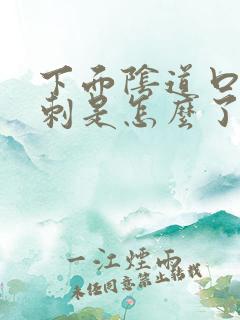 下面陰道口
刺是怎麼了
一江煙雨
未經同意禁止轉載